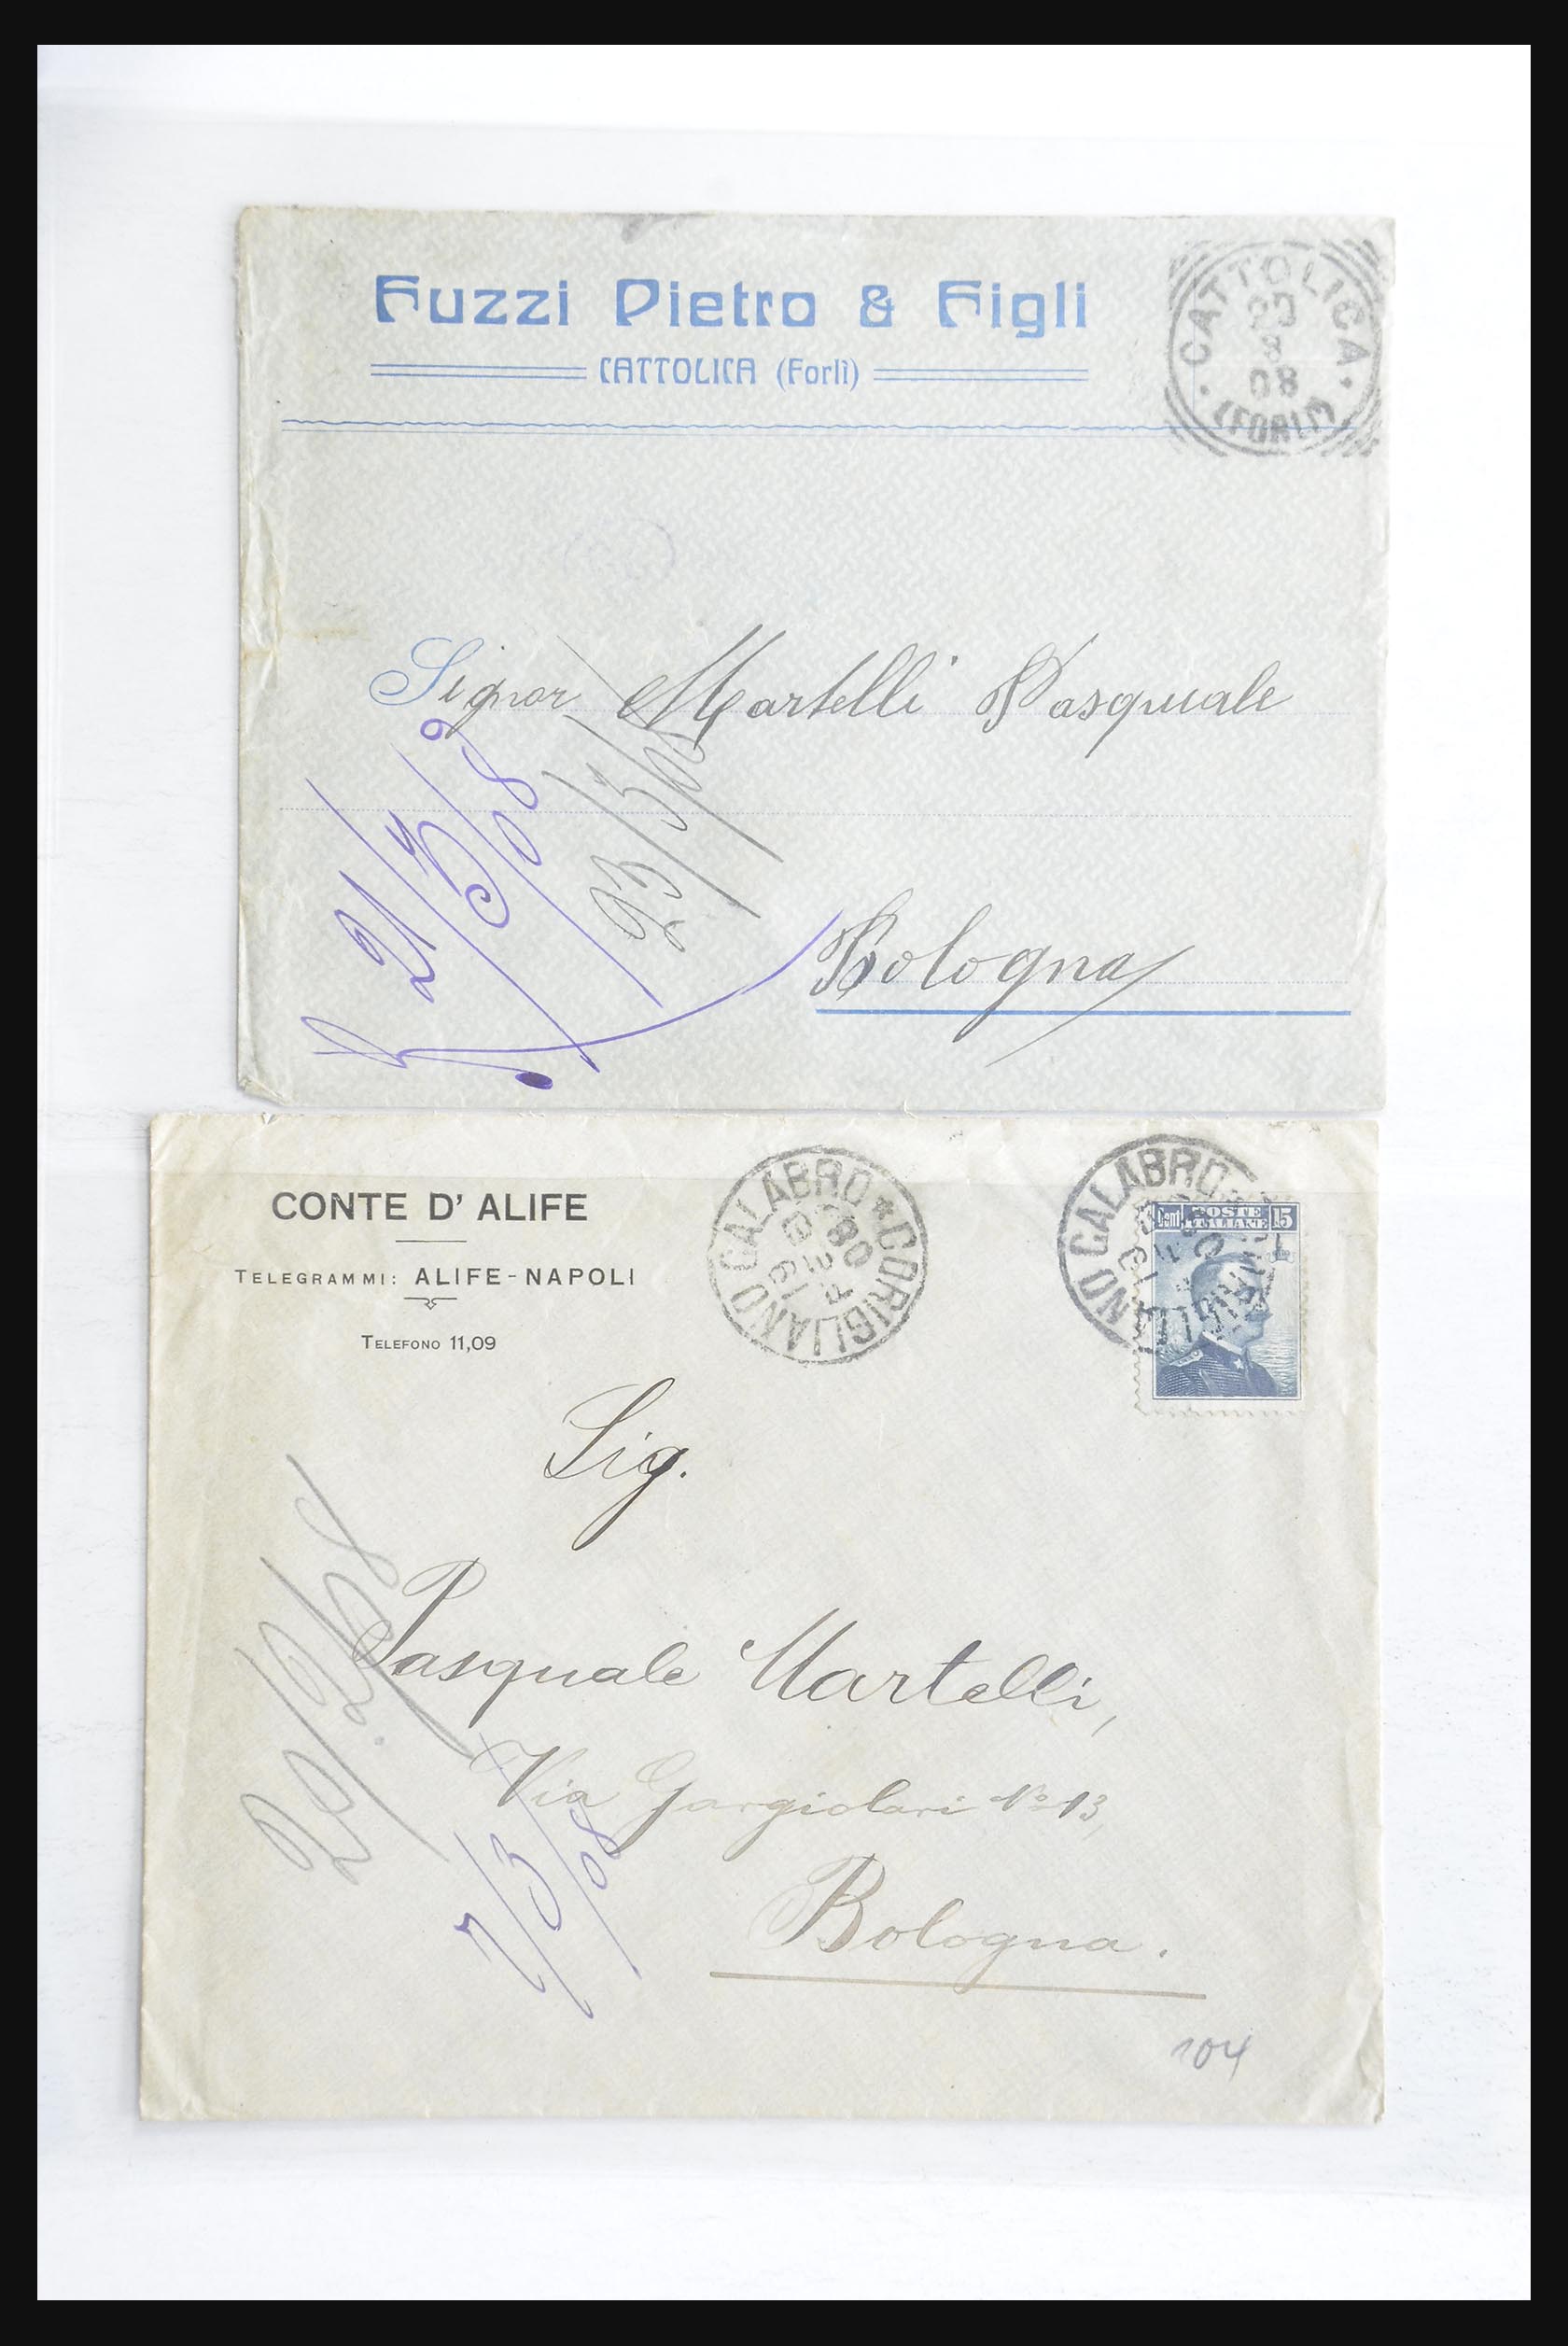 Fuzzi Pietro & Figli
CATTOLICA (Forlì)
CATTOLICA
20
3
08
(FORLI)
Signor Martelli Pasquale
21/3/08
23/3/08
Bologna
CONTE D' ALIFE
TELEGRAMMI: ALIFE-NAPOLI
TELEFONO 11,09
CORIGLIANO CALABRO
08
CORIGLIANO CALABRO
Cent. POSTE ITALIANE 15
Sig.
Pasquale Martelli,
Via Gargiolari No 13,
Bologna.
7/3/08
104